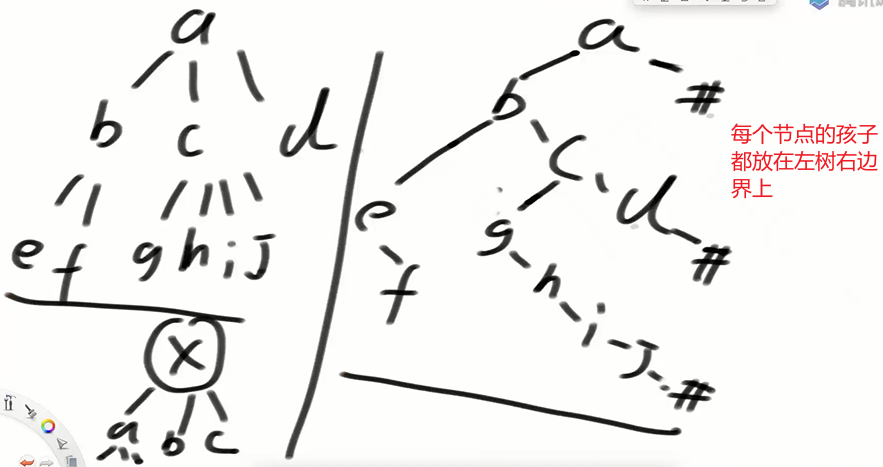 a
b c d
e f g h i j
x
a b c
a
b #
c
e d
g #
f h
i
j
#
每个节点的孩子
都放在左树右边
界上